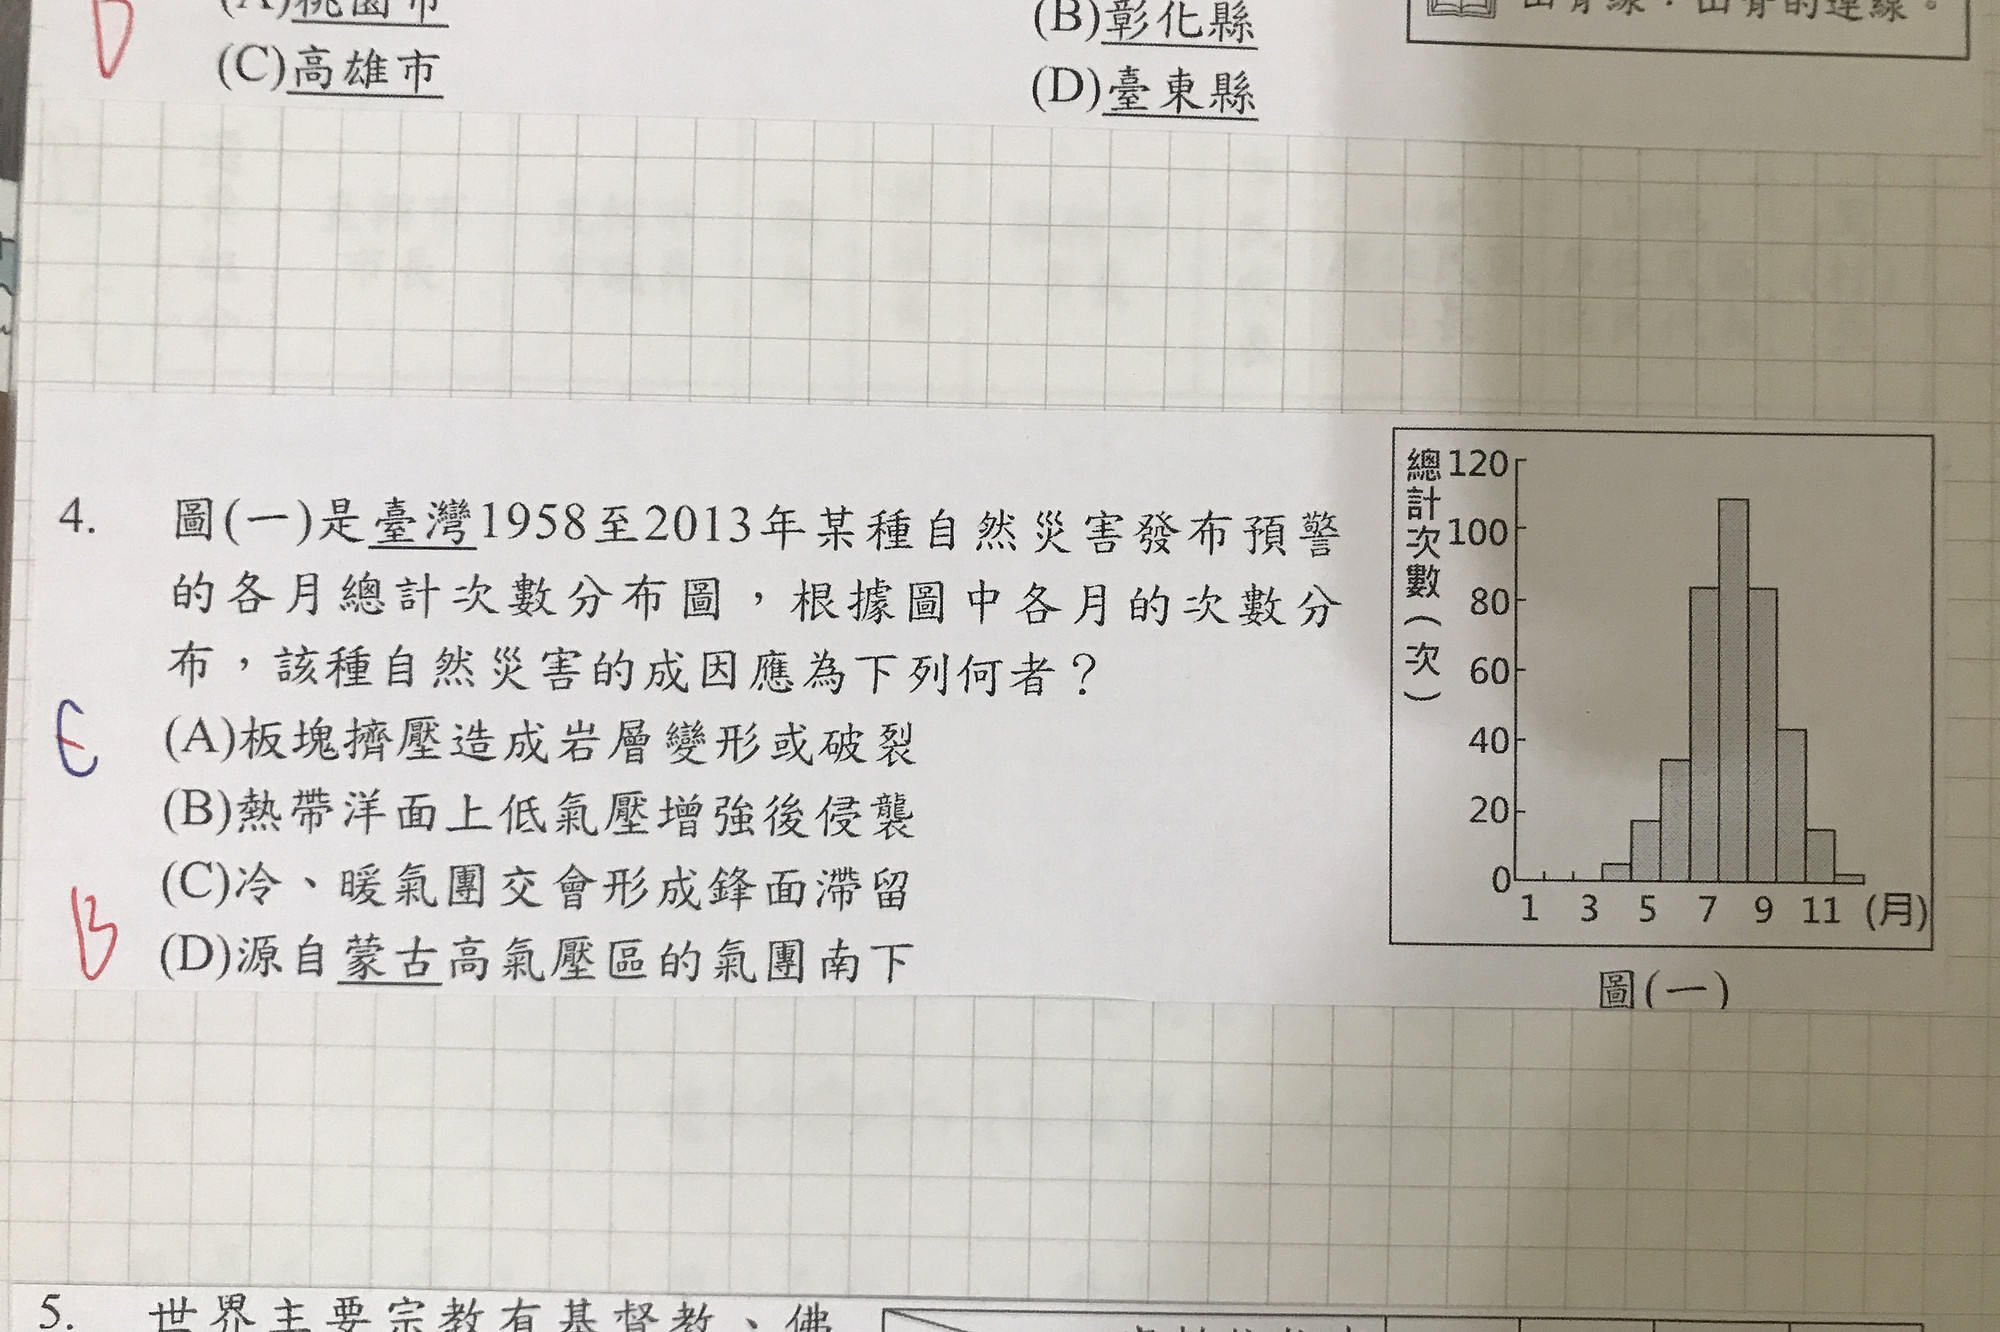 (A)桃園市
(B)彰化縣
山脊線：山脊的連線。
D
(C)高雄市
(D)臺東縣
4. 圖(一)是臺灣1958至2013年某種自然災害發布預警
的各月總計次數分布圖，根據圖中各月的次數分
布，該種自然災害的成因應為下列何者？
(A)板塊擠壓造成岩層變形或破裂
(B)熱帶洋面上低氣壓增強後侵襲
(C)冷、暖氣團交會形成鋒面滯留
B
(D)源自蒙古高氣壓區的氣團南下
總計次數(次)
120
100
80
60
40
20
0
1 3 5 7 9 11 (月)
圖(一)
5. 世界主要宗教有基督教、佛